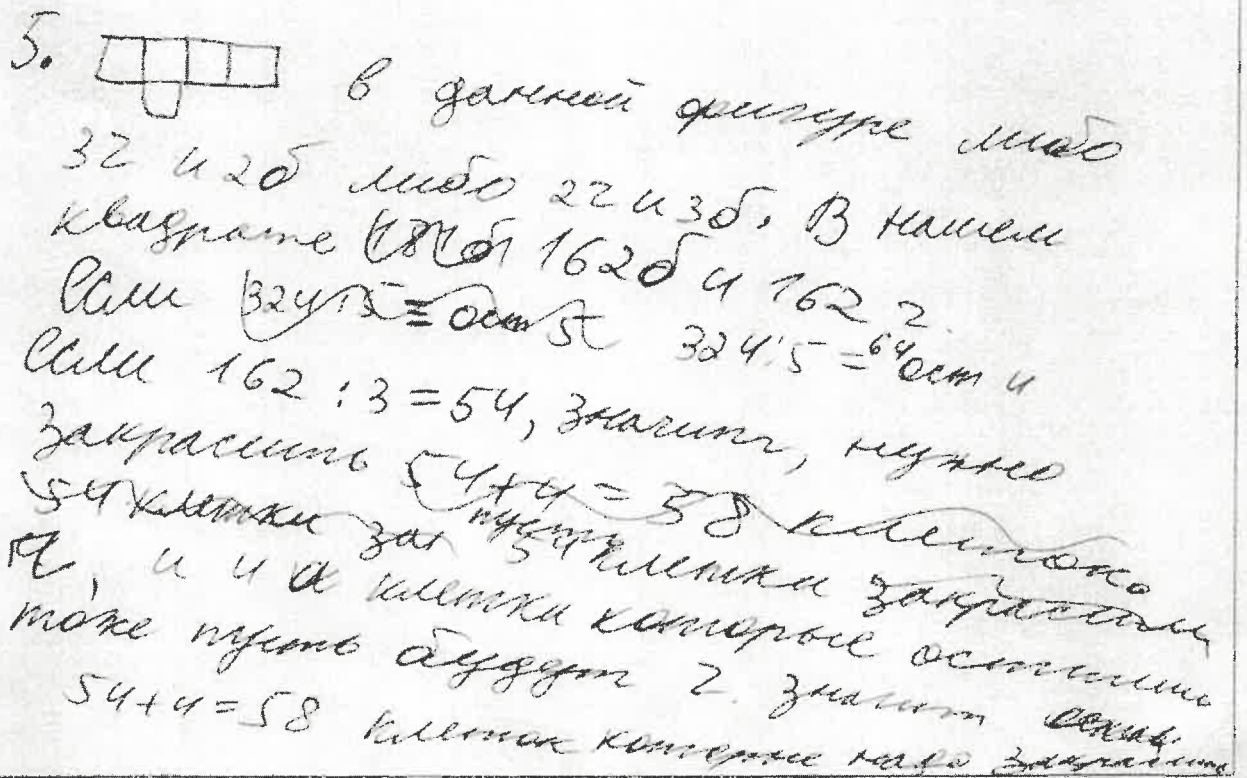 5. в данной фигуре либо
3ч и 2б либо 2ч и 3б. В нашем
квадрате 162б и 162 ч.
Если 324:5 = 64 ост 4
Если 162 : 3 = 54, значит, нужно
закрасить 54+4 = 58 клеток.
54 клетки пусть 54 клетки закрасим
ч, и 4 клетки которые остались
тоже пусть будут ч. значит
54+4=58 клеток которые надо закрасить